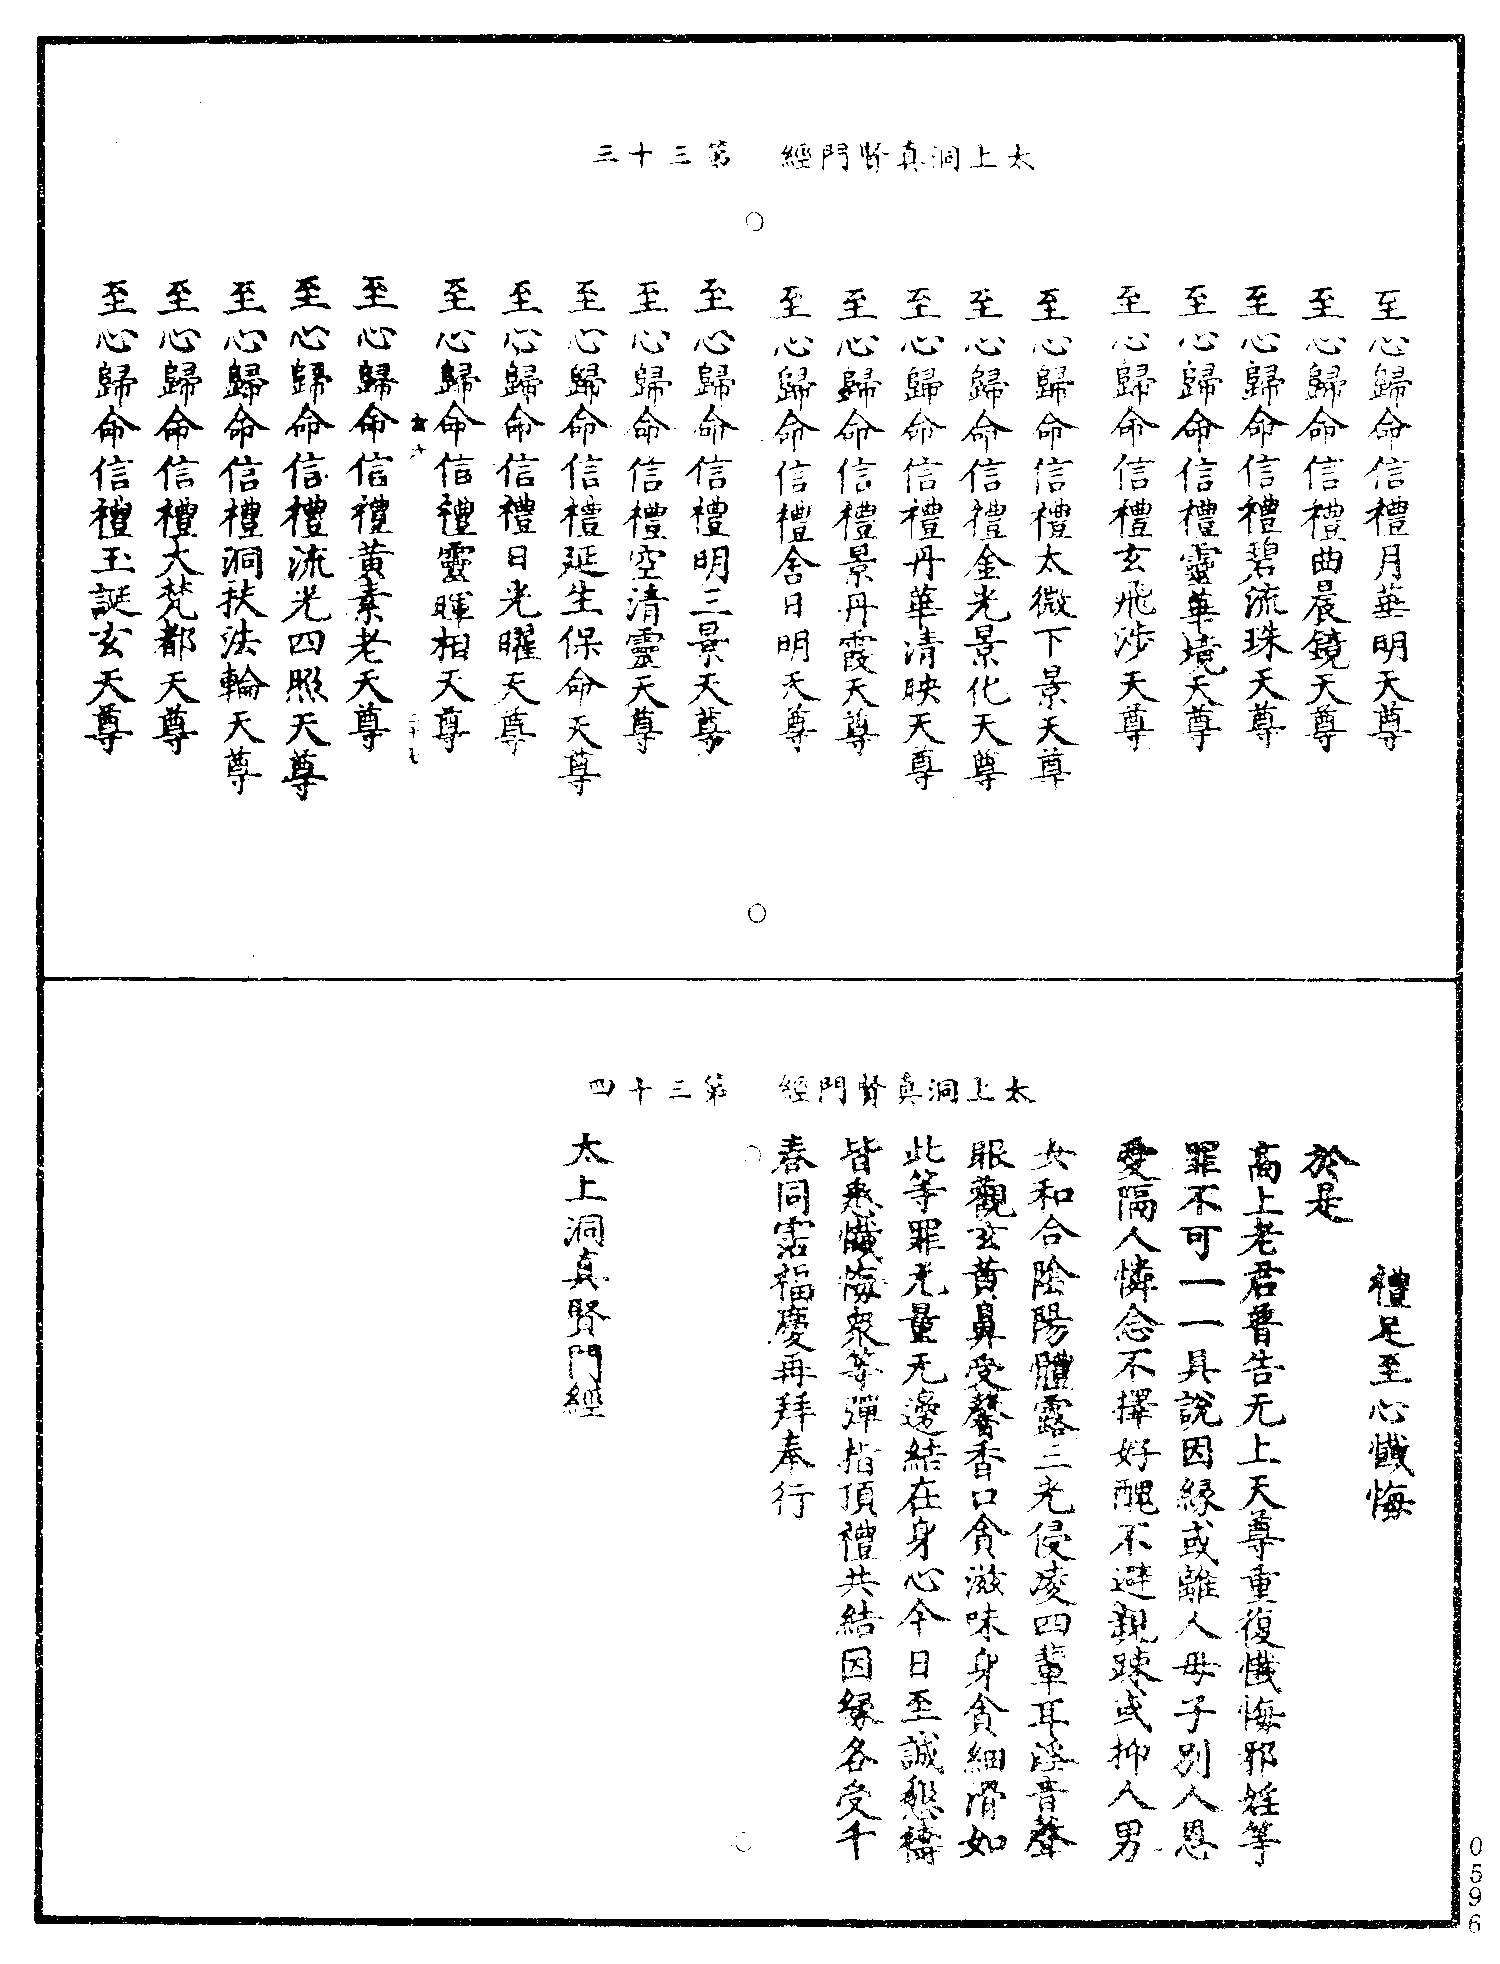 太上洞真賢門經　第三十三
至心歸命信禮月華明天尊
至心歸命信禮曲晨鏡天尊
至心歸命信禮碧流珠天尊
至心歸命信禮靈華境天尊
至心歸命信禮玄飛涉天尊
至心歸命信禮太微下景天尊
至心歸命信禮金光景化天尊
至心歸命信禮丹華清映天尊
至心歸命信禮景丹霞天尊
至心歸命信禮含日明天尊
至心歸命信禮明三景天尊
至心歸命信禮空清靈天尊
至心歸命信禮延生保命天尊
至心歸命信禮日光曜天尊
至心歸命信禮靈暉相天尊
至心歸命信禮黃素老天尊
至心歸命信禮流光四照天尊
至心歸命信禮洞扶法輪天尊
至心歸命信禮大梵都天尊
至心歸命信禮玉誕玄天尊
太上洞真賢門經　第三十四
禮足至心懺悔
於是
高上老君普告无上天尊重復懺悔邪婬等
罪不可一一具說因緣或離人母子別人恩
愛隔人憐念不擇好醜不避親踈或抑人男
女和合陰陽體露三光侵凌四輩耳淫音聲
眼觀玄黃鼻受馨香口貪滋味身貪細滑如
此等罪无量无邊結在身心今日至誠懇禱
皆悉懺悔衆等彈指頂禮共結因緣各受千
春同霑福慶再拜奉行
太上洞真賢門經
0596